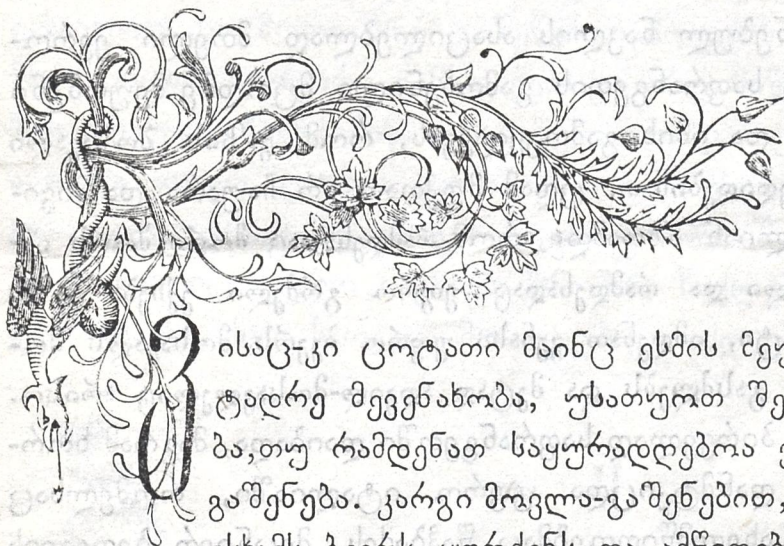 ვისაც კი ცოტათი მაინც ესმის
ტდრე მევენახობა, უსათუოთ
ბა, თუ რამდენათ საყურადღებოა
გაშენება. კარგი მოვლა-გაშენებით,